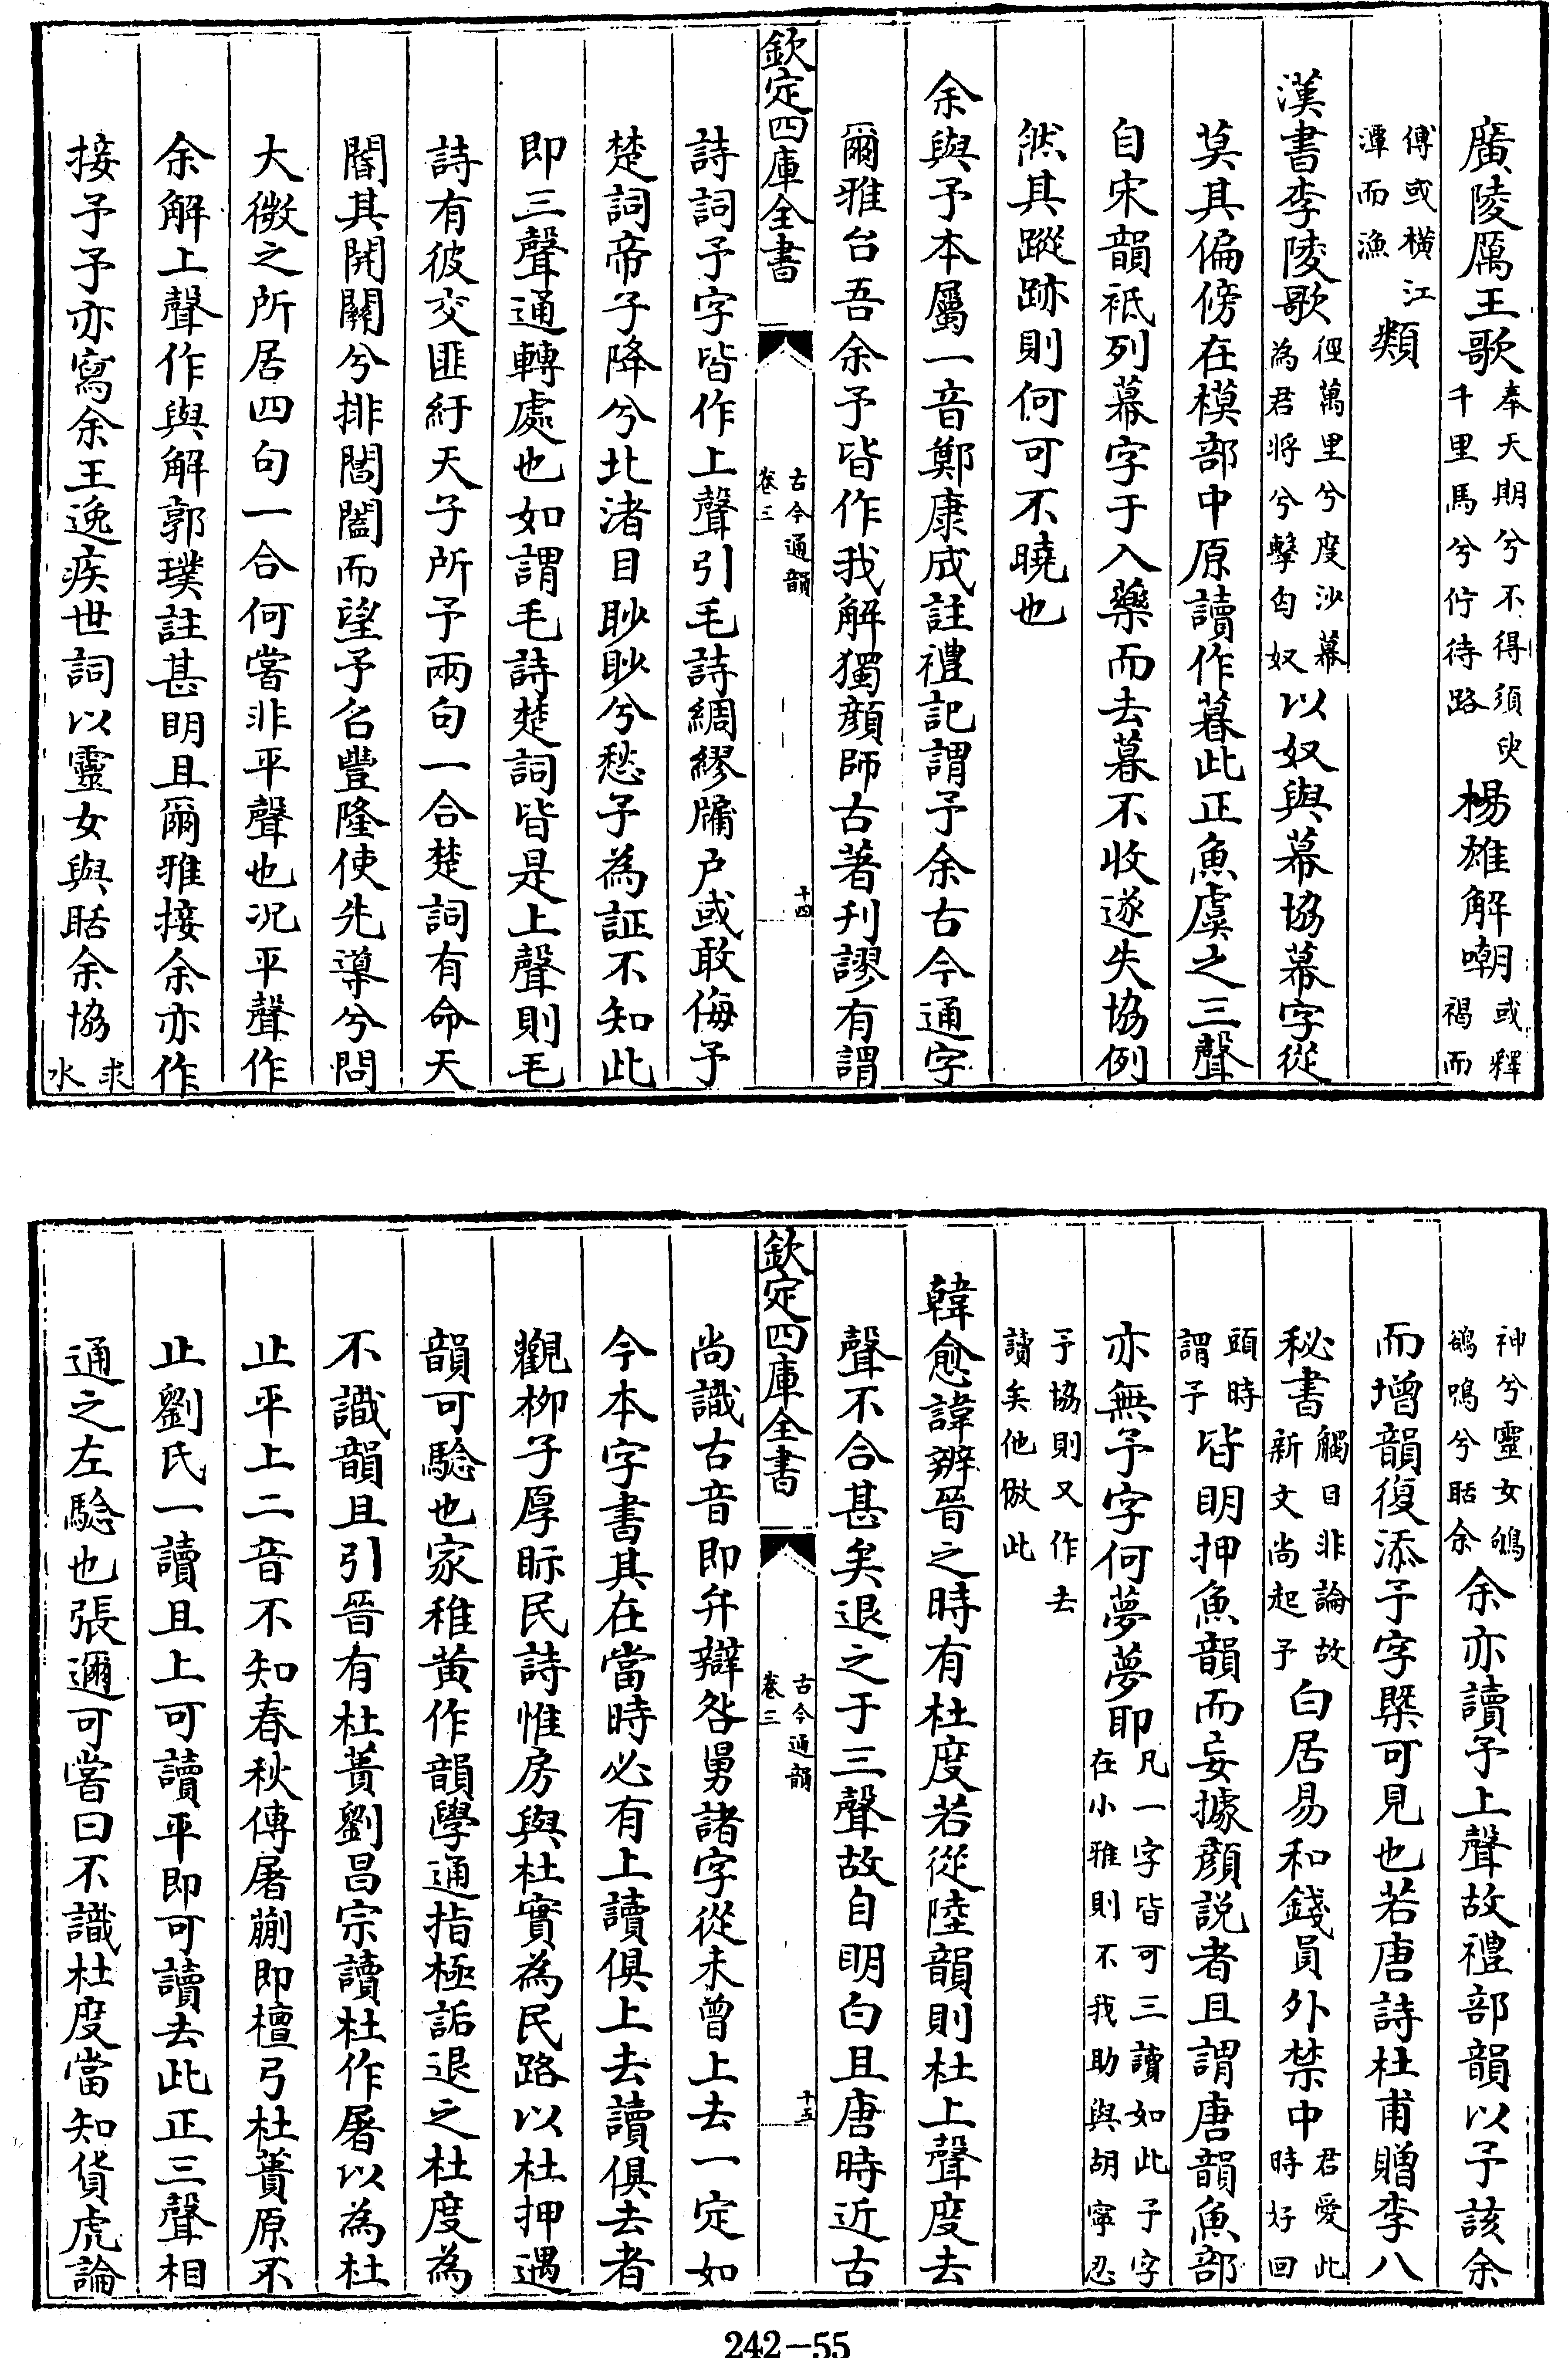 廣陵厲王歌奉天期兮不得須臾千里馬兮佇待路楊雄解嘲或釋褐而
傅或橫江潭而漁類
漢書李陵歌徑萬里兮度沙幕為君將兮擊匈奴以奴與幕協幕字從
莫其偏傍在模部中原讀作暮此正魚虞之三聲
自宋韻祗列幕字于入藥而去暮不收遂失協例
然其蹤跡則何可不曉也
余與予本屬一音鄭康成註禮記謂予余古今通字
爾雅台吾余予皆作我解獨顏師古著刋謬有謂
欽定四庫全書
古今通韻
卷三
十四
詩詞予字皆作上聲引毛詩綢繆牖户或敢侮予
楚詞帝子降兮北渚目眇眇兮愁予為証不知此
即三聲通轉處也如謂毛詩楚詞皆是上聲則毛
詩有彼交匪紓天子所予兩句一合楚詞有命天
閽其開關兮排閶闔而望予名豐隆使先導兮問
大微之所居四句一合何嘗非平聲也况平聲作
余解上聲作與解郭璞註甚明且爾雅接余亦作
接予予亦寫余王逸疾世詞以靈女與聒余協求水
神兮靈女鴝鵒鳴兮聒余余亦讀予上聲故禮部韻以予該余
而增韻復添予字槩可見也若唐詩杜甫贈李八
秘書觸目非論故新文尚起予白居易和錢員外禁中君愛此時好回
頭時謂予皆明押魚韻而妄據顏説者且謂唐韻魚部
亦無予字何夢夢耶凡一字皆可三讀如此予字在小雅則不我助與胡寧忍
予協則又作去讀矣他倣此
韓愈諱辨晉之時有杜度若從陸韻則杜上聲度去
聲不合甚矣退之于三聲故自明白且唐時近古
欽定四庫全書
古今通韻
卷三
十五
尚識古音即弁辯咎舅諸字從未曾上去一定如
今本字書其在當時必有上讀俱上去讀俱去者
觀柳子厚眎民詩惟房與杜實為民路以杜押遇
韻可驗也家稚黄作韻學通指極詬退之杜度為
不識韻且引晉有杜蕢劉昌宗讀杜作屠以為杜
止平上二音不知春秋傳屠蒯即檀弓杜蕢原不
止劉氏一讀且上可讀平即可讀去此正三聲相
通之左驗也張邇可嘗曰不識杜度當知貨虎論
242-55